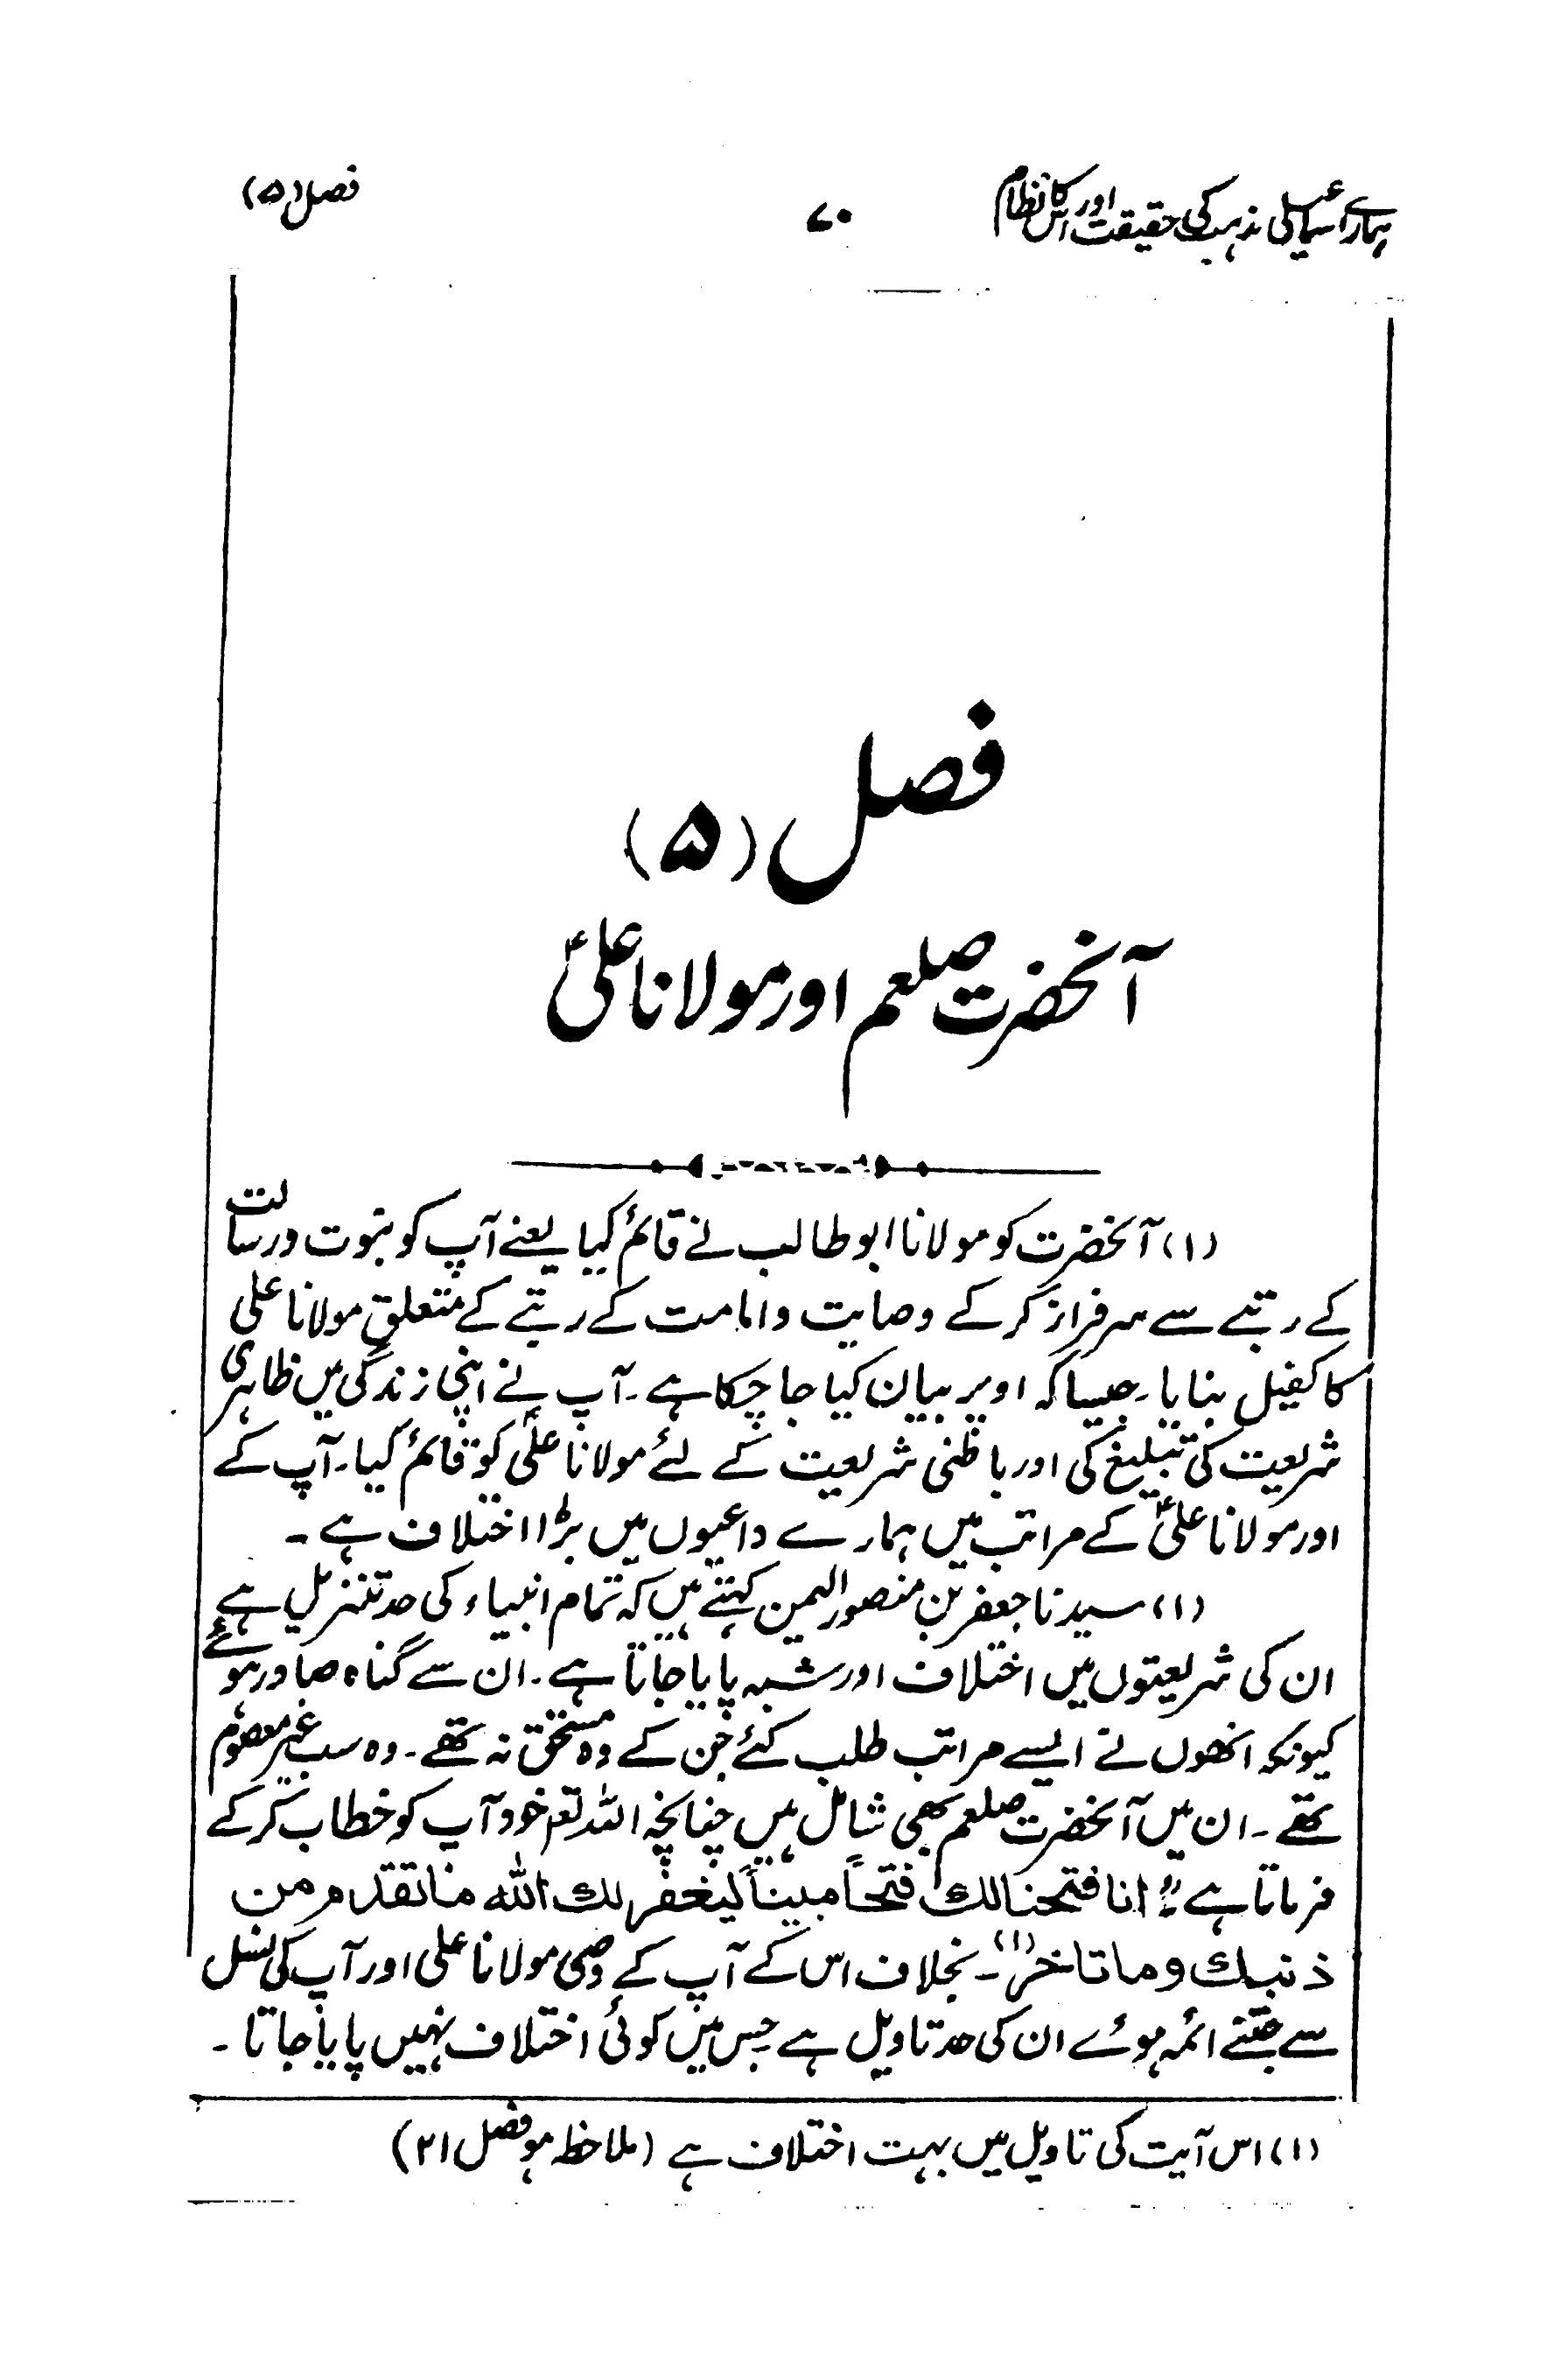 ہمارے اسماعیلی مذہب کی حقیقت اور اس کا نظام ۷۰ فصل (۵)
فصل (۵)
آنحضرت صلعم اور مولانا علیؑ
(۱) آنحضرت کو مولانا ابو طالب نے قائم کیا یعنے آپ کو نبوت و رسالت
کے رتبے سے سرفراز کر کے وصایت و امامت کے رتبے کے متعلق مولانا علی
کا کفیل بنایا۔ جیسا کہ اوپر بیان کیا جا چکا ہے۔ آپ نے اپنی زندگی میں ظاہری
شریعت کی تبلیغ کی اور باطنی شریعت کے لئے مولانا علیؑ کو قائم کیا۔ آپ کے
اور مولانا علیؑ کے مراتب میں ہمارے داعیوں میں بڑا اختلاف ہے۔
(۱) سیدنا جعفر بن منصور الیمن کہتے ہیں کہ تمام انبیاء کی حد تنزیل ہے
ان کی شریعتوں میں اختلاف اور شبہ پایا جاتا ہے۔ ان سے گناہ صادر ہوئے
کیونکہ انھوں نے ایسے مراتب طلب کئے جن کے وہ مستحق نہ تھے۔ وہ سب غیر معصوم
تھے۔ ان میں آنحضرت صلعم بھی شامل ہیں چنانچہ اللہ تعم خود آپ کو خطاب کر کے
فرماتا ہے "انا فتحنا لك فتحاً مبیناً لیغفر لك الله ما تقدم من
ذنبك وما تاخر"(۱)۔ بخلاف اس کے آپ کے وصی مولانا علی اور آپ کی نسل
سے جتنے ائمہ ہوئے ان کی حد تاویل ہے جس میں کوئی اختلاف نہیں پایا جاتا۔
(۱) اس آیت کی تاویل میں بہت اختلاف ہے (ملاحظہ ہو فصل ۲۱)